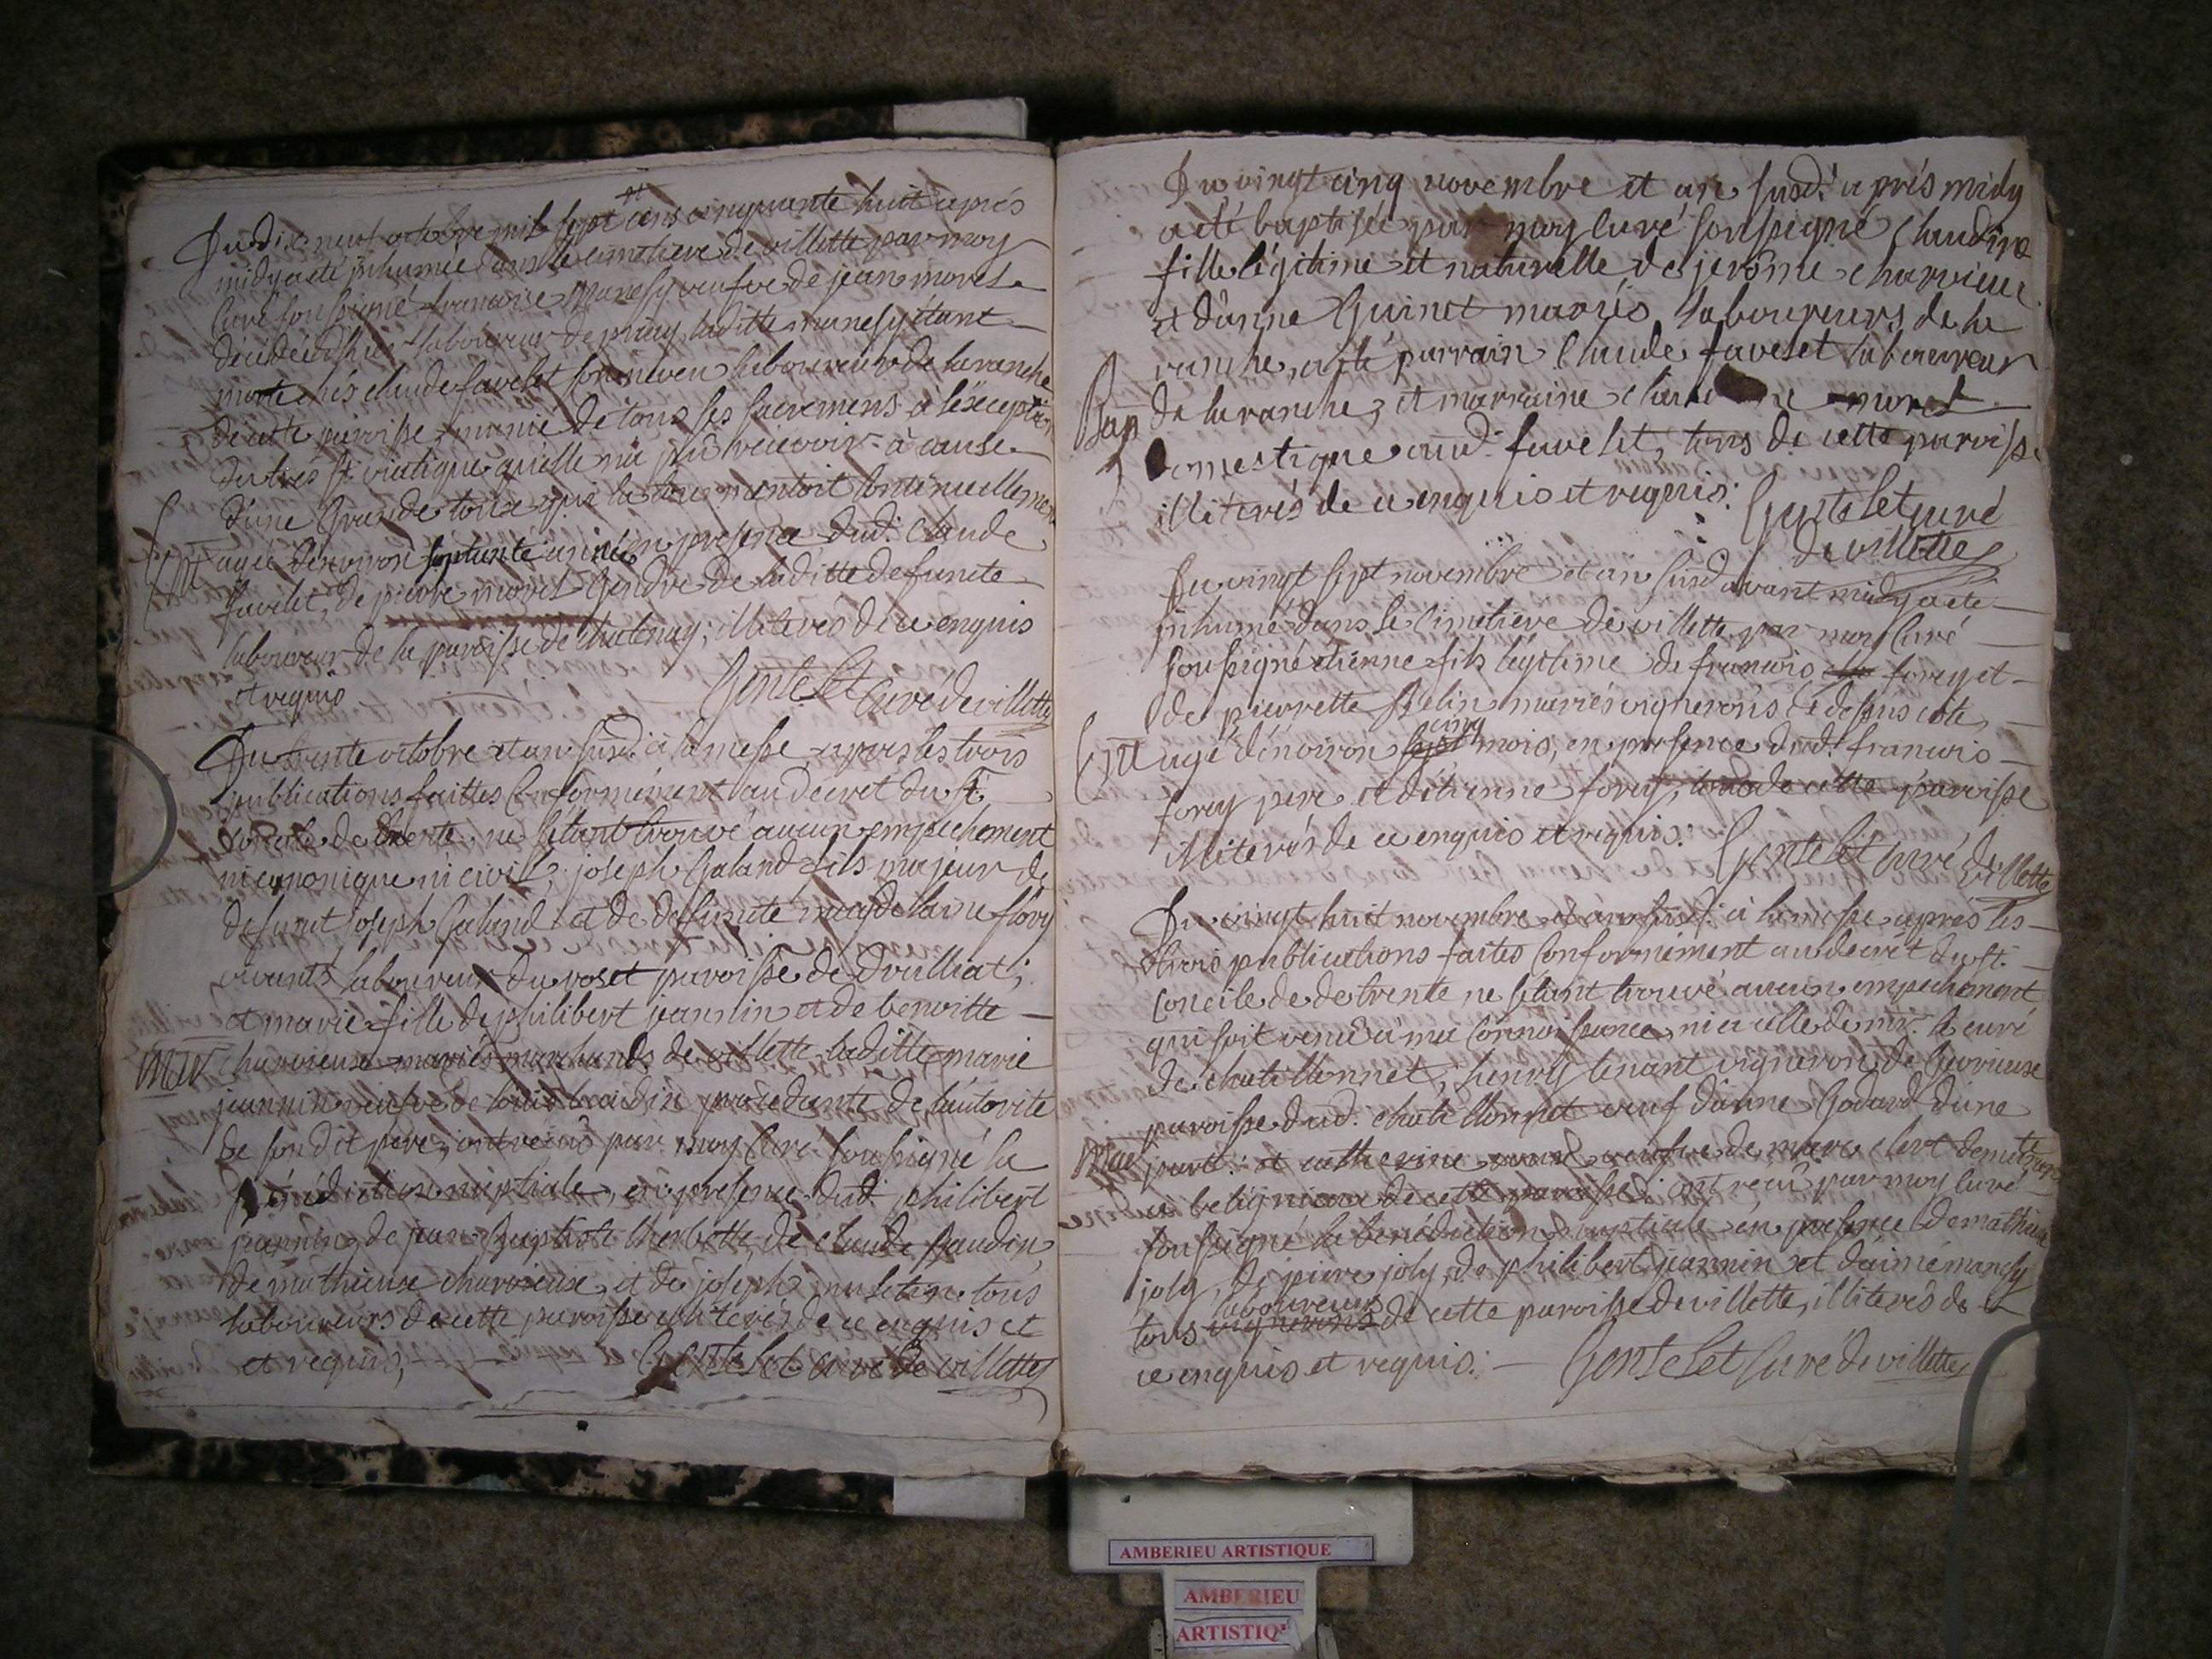 Du dixneuf octobre mil sept cens cinquante huit après
midy a eté inhumée dans le cimetiere de villette par moy
Curé soussigné francoise Manesy veufve de jean morel
décédé d'hier laboureur de laditte manesy étant
morte chés claude favelet son neveu laboureur de la ranche
de cette paroisse, munie de tous les sacremens à l'exception
du très st. viatique qu'elle n'a pû recevoir à cause
d'une Grande toux qui la tourmentoit Continuellement
agée d'environ septante années en presence dud. Claude
favelet, de pierre morel Gendre de laditte defuncte
laboureur de la paroisse de chatenay; illiterés de ce enquis
et requis Gontelet Curé de villette
Du trente octobre et an susd. à la messe après les trois
publications faittes Conformément au decret du st.
concile de trente, ne s'etant trouvé aucun empechement
ni canonique ni civil; joseph Galand fils majeur de
defunt joseph Galand et de defuncte magdelaine flory
vivants laboureurs du roset paroisse de druilliat;
et marie fille de philibert jeannin et de benoitte
Mar charvieux mariés marchands de villette laditte marie
jeannin veufve de louis beaudin procedante de l'autorité
de son dit pere, ont reçus par moy Curé soussigné la
bénédiction nuptiale, en presence dud. philibert
jeannin, de jean Baptiste therbotte, de claude Baudin,
de mathieu charvieux, et de joseph tous
laboureurs de cette paroisse illiterés de ce enquis et
et requis, Gontelet curé de villette
Du vingt cinq novembre et an susd. après midy
a eté baptisée par moy Curé soussigné Claudine
fille légitime et naturelle de jerôme charvieux
et d'anne Guinet mariés laboureurs de la
ranche, a eté parrain Claude favelet laboureur
Bap de la ranche, et marraine morel
domestique aud. favelet, tous de cette paroisse
illiterés de ce enquis et requis: Gontelet curé
de villette
Du vingt sept novembre et an susd avant midy a eté
inhumé dans le Cimetiere de villette par moy Curé
soussigné etienne fils légitime de francois forey et
de pierrette Belin mariés vignerons de dessus cote,
cinq
Ent agé d'environ sept mois, en presence dud. francois
forey pere et d'etienne forey, tous de cette paroisse
illiterés de ce enquis et requis: Gontelet curé de
villette
Du vingt huit novembre et an susd. à la messe après les
trois publications faites Conformément au decret du st.
Concile de de trente ne s'etant trouvé aucun empechement
qui soit venu à ma Connoissance, ni à celle de mr. le curé
de chatillonnet, henry tenant vigneron de Gevrieux
paroisse dud. chatillonnet veuf d'anne Godard d'une
Mar part: et catherine veufve de marc clert demeurant
à beligneux de cette paroisse; ont reçû par moy Curé
soussigné la bénédiction nuptiale en presence de mathieu
joly, de piere joly, de philibert jeannin et d'aimé manesy
laboureurs
tous vignerons de cette paroisse de villette, illiterés de
ce enquis et requis: Gontelet Curé de villette
AMBERIEU ARTISTIQUE
AMBERIEU
ARTISTIQ